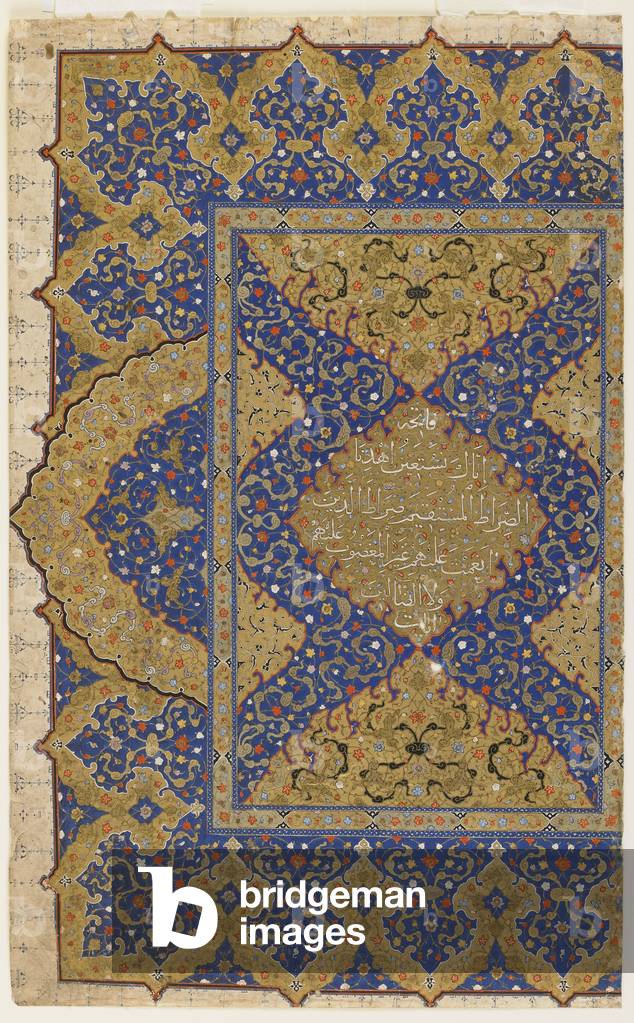 فاتحة
اياك نستعين اهدنا
الصراط المستقيم صراط الذين
انعمت عليهم غير المغضوب عليهم
ولا الضالين
bridgeman
images